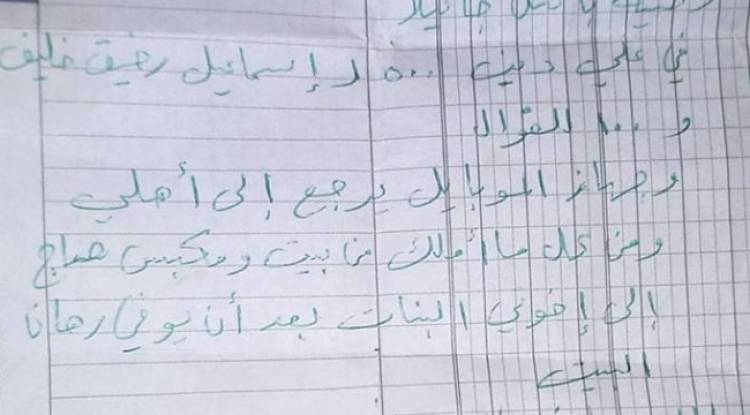 في علي دين ٥٠٠ لإسماعيل رفيق خليف
و ١٠٠ الفؤال
وجهاز الموبايل يرجع إلى أهلي
ومن كل ما أملك من بيت ومكبس
إلى إخوتي البنات بعد أن يوفى رهان
البيت